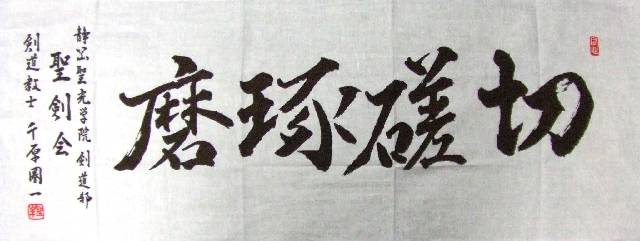 切磋琢磨
静岡聖光学院剣道部
聖剣会
剣道教士 千原国一